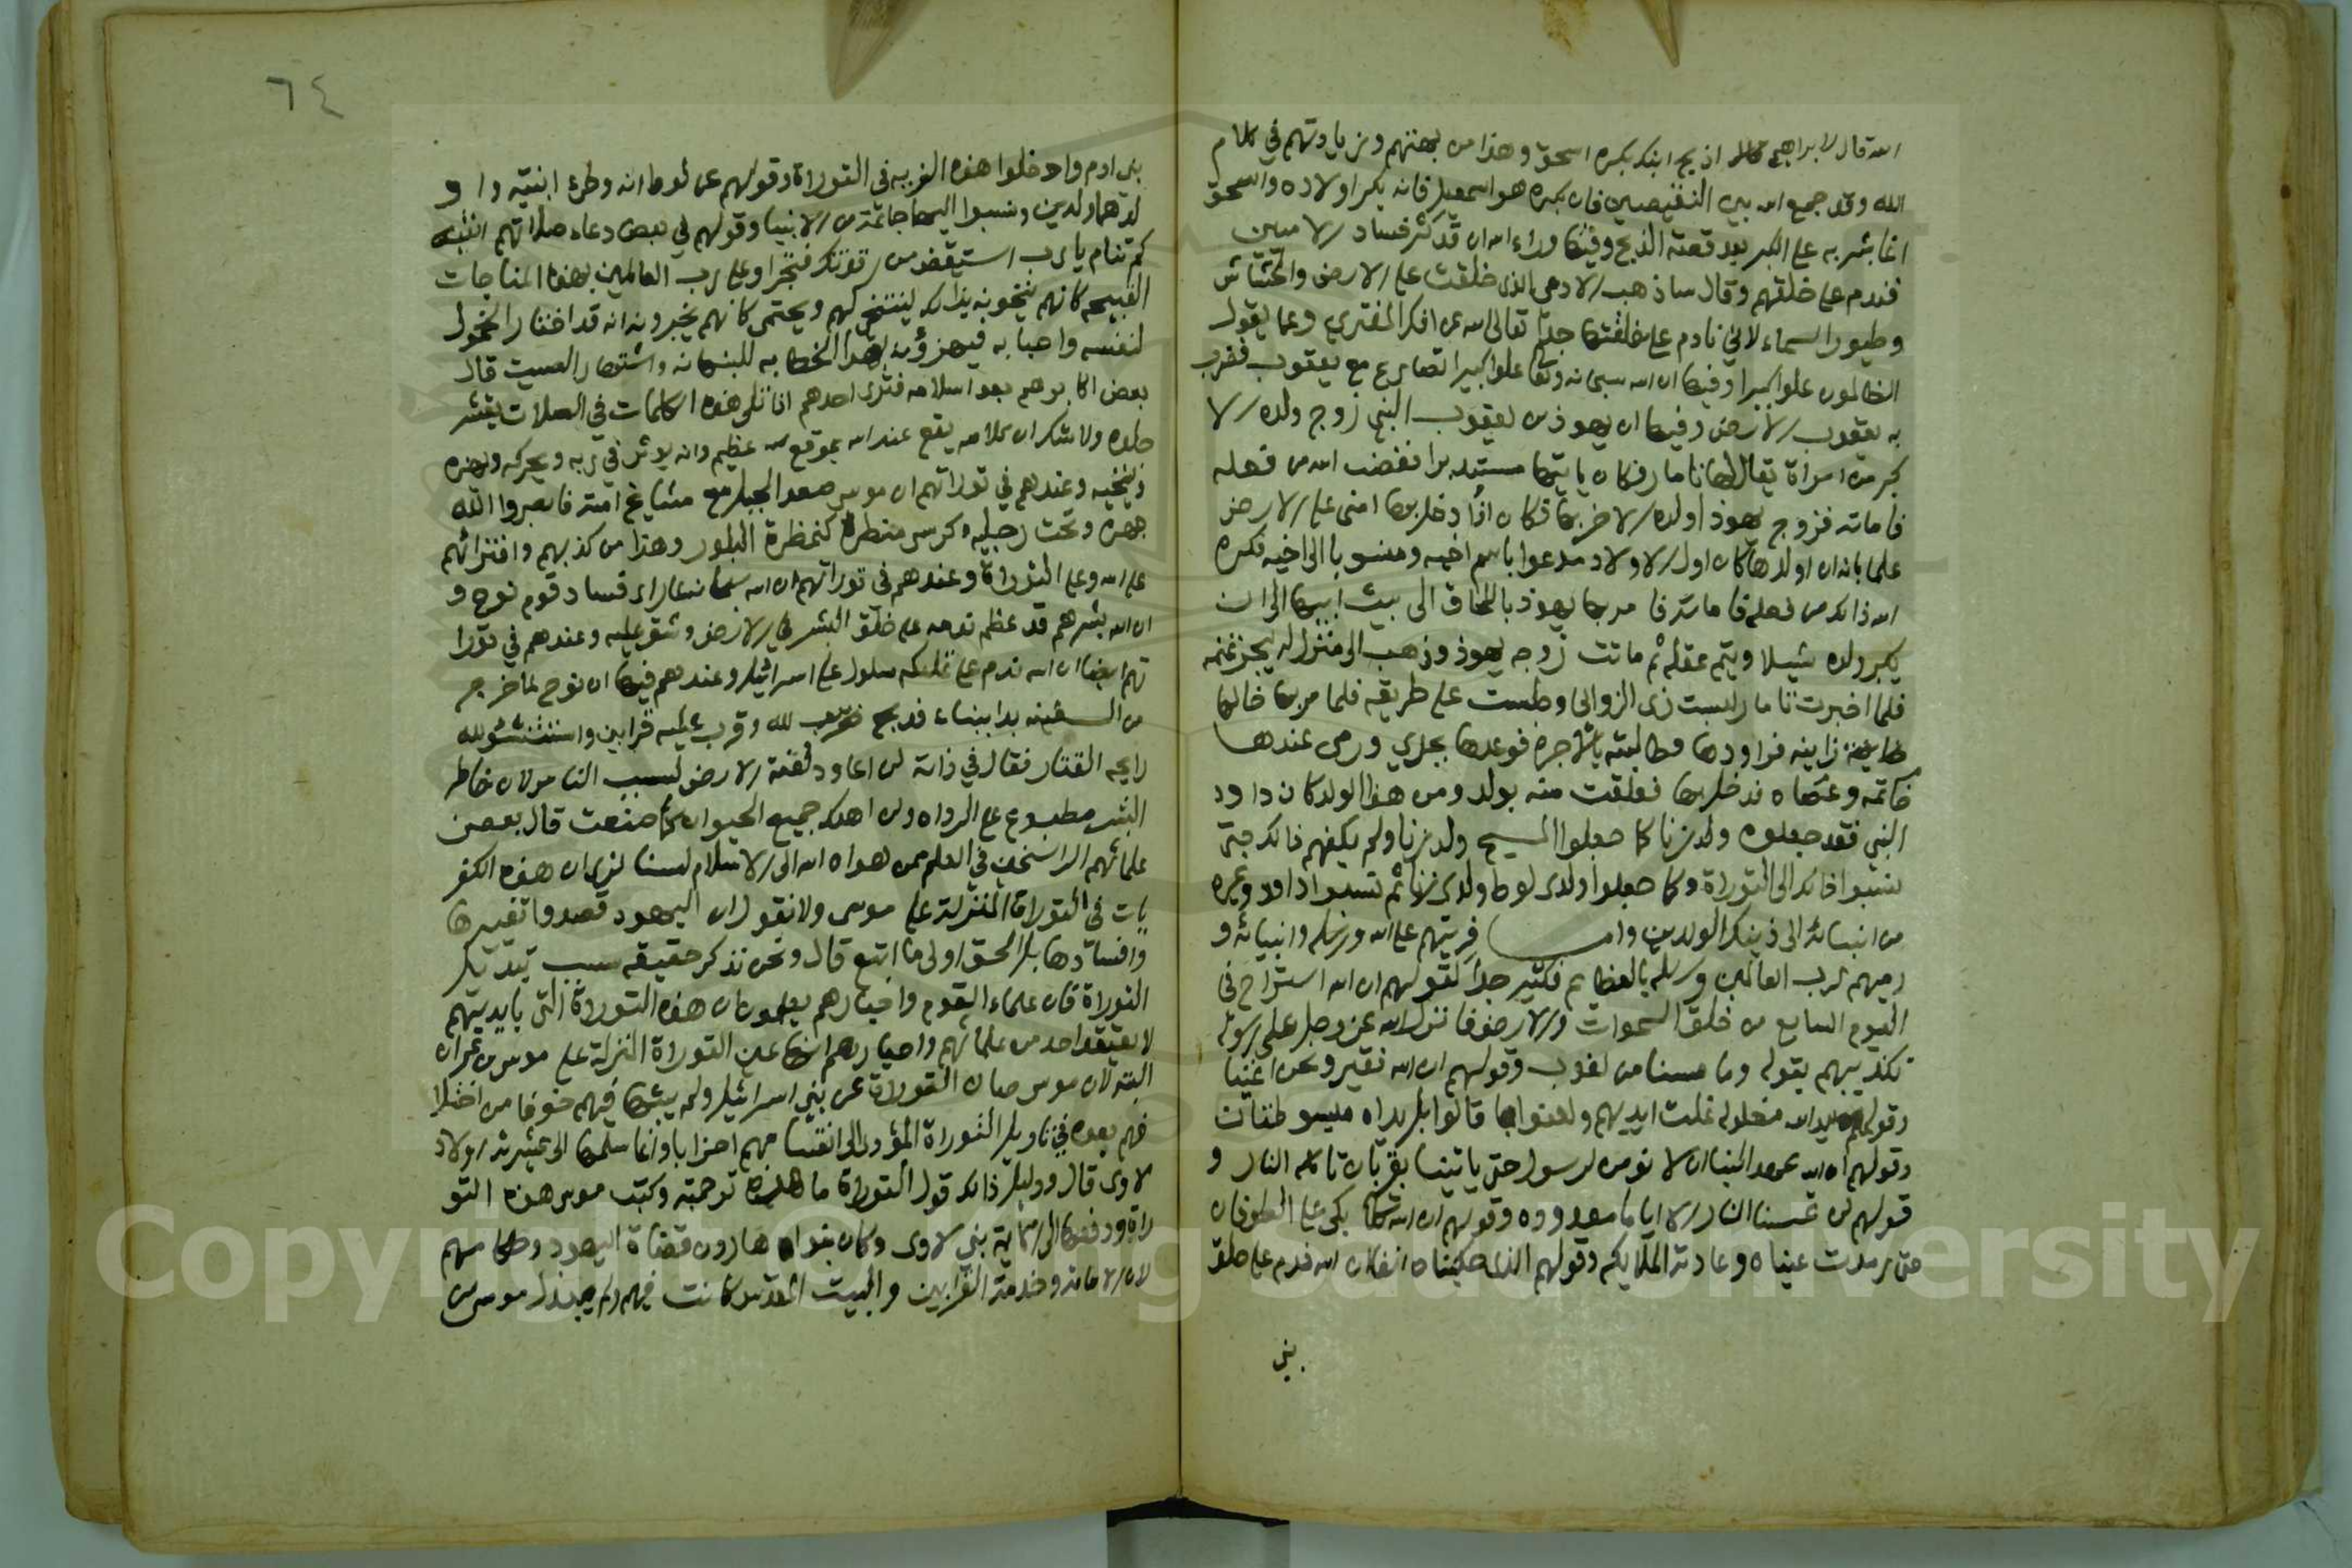 الله قال لابراهيم اذبح ابنك بكرك اسحق وهذا من بهتهم وزيادتهم في كلام
الله وقد جمع الله بين النقيضين فان بكره هو اسمعيل فانه بكر اولاده واسحق
انما بشر به على الكبر بعد قصة الذبح وفيها وراء الله ان قد كثر فساد الاميين
فندم على خلقهم وقال ساذهب الادمي الذى خلقت على الارض والخشاش
وطيور السماء لاني نادم على خلقتها جدا تعالى الله عن افك المفتري وعما يقول
الظالمون علوا كبيرا وفيها ان الله سبحانه وتعالى علوا كبيرا تصارع مع يعقوب فضرب
به يعقوب الارض وفيها ان يهوذ بن يعقوب النبي زوج ولده الا
كبر من امراة يقال لها تامار فكان ياتيها مستدبرا فغضب الله من فعله
فاماته فزوج يهوذا ولده الاخر بها فكان اذا دخل بها امنى على الارض
علما بانه ان اولدها كان اول الاولاد مدعوا باسم اخيه ومنسوبا الى اخيه فكره
الله ذالك من فعله فاماته فامرها يهوذ باللحاق الى بيت ابيها الى ان
يكبر ولده شيلا ويتم عقله ثم ماتت زوجه يهوذ وذهب الى منزل له ليجز غنمه
فلما اخبرت تامار لبست زى الزوانى وجلست على طريقه فلما مر بها خالها
زانيه فراودها وطالبته بالاجرة فوعدها بجدي ورمى عندها
خاتمه وعصاه فدخل بها فعلقت منه بولد ومن هذا الولد كان داود
النبي فقد جعلوه ولد زنا كما جعلوا المسيح ولد زنا ولم يكفهم ذالك حتى
نسبوا ذالك الى التوراة وكما جعلوا ولدى لوط ولدى زنا ثم نسبوا داود وغيره
من انبيائه الى ذينك الولدين واما فريتهم على الله ورسله وانبيائه و
رميهم لرب العالمين ورسله بالعظايم فكثير جدا كقولهم ان الله استراح فى
اليوم السابع من خلق السموات والارض فانزل الله عز وجل على رسوله
تكذيبهم بقوله وما مسنا من لغوب وقولهم ان الله فقير ونحن اغنيا
وقولهم يد الله مغلوله غلت ايديهم ولعنوا بما قالوا بل يداه مبسوطتان
وقولهم ان الله عهد الينا ان لا نومن لرسول حتى ياتينا بقربان تاكله النار و
قولهم لن تمسنا النار الا اياما معدوده وقولهم ان الله تعالى بكى على الطوفان
حتى رمدت عيناه وعادته الملايكه وقولهم الذى حكيناه انفا ان الله ندم على خلق
بني
٦٤
بنى ادم وادخلوا هذه الفريه فى التوراة وقولهم عن لوط انه وطئ ابنتيه وا و
لدهما ولدين ونسبوا اليهما جماعة من الانبيا وقولهم فى بعض دعاء صلاتهم انتبه
كم تنام يارب استيقض من رقدتك فتجراوا على رب العالمين بهذه المناجات
القبيحه كانهم ينخونه بذالك لينتخي لهم ويحتمى كانهم يخبرونه انه قد اختار الخمول
لنفسه واحبابه فيهزؤنه بهذا الخطاب للنباهه واشتهار الصيت قال
بعض اكابرهم بعد اسلامه فترى احدهم اذا تلى هذه الكلمات في الصلات يقشعر
جلده ولا شك ان كلامه يقع عند الله بموقع عظيم وانه يوثر في ربه ويحركه ويهزه
وينخيه وعندهم في توراتهم ان موسى صعد الجبل مع مشايخ امته فابصروا الله
جهرة وتحت رجليه كرسي منظره كمنظرة البلور وهذا من كذبهم وافترائهم
على الله وعلى التوراة وعندهم فى توراتهم ان الله سبحانه لما راى فساد قوم نوح و
ان الله بشرهم قد عظم ندمه على خلق البشر في الارض وشق عليه وعندهم في تورا
تهم ايضا ان الله ندم على تمليكه سلول على اسرائيل وعندهم فيها ان نوح لما خرج
من السفينه بدا ببناء فدبح لله وقرب عليه قرابين واستنشق الله
رايحه القتار فقال في ذاته لن اعاود لعنة الارض بسبب الناس لان خاطر
البشر مطبوع على الرداه ولن اهلك جميع الحيوان كما صنعت قال بعض
علمائهم الراسخين في العلم ممن هداه الله الى الاسلام لسنا نرى ان هذه الكفر
يات في التوراة المنزلة على موسى ولا نقول ان اليهود قصدوا تغييرها
وافسادها بل الحق اولى ما اتبع قال ونحن نذكر حقيقه سبب تبديل
التوراة فان علماء القوم واحبارهم يعلمون ان هذه التوراة التى بايديهم
لا يعتقد احد من علمائهم واحبارهم انها عين التوراة المنزلة على موسى بن عمران
البته لان موسى صان التوراة عن بني اسرائيل ولم يبثها فيهم خوفا من اختلا
فهم بعده في تاويل التوراة المؤدى الى انقسامهم احزابا وانما سلمها الى عشيرته اولاد
لاوى قال ودليل ذالك قول التوراة ما هذه ترجمته وكتب موسى هذه التو
راة ودفعها الى ائمة بني لاوى وكان بنوا هارون قضاة اليهود وحكامهم
لان الامامة وخدمة القرابين والبيت المقدس كانت فيهم ولم يبذل موسى من